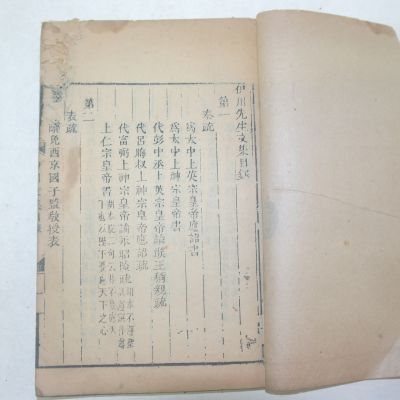 伊川先生文集目錄
第一
奏疏
爲太中上英宗皇帝應詔書
爲太中上神宗皇帝書
代彭中丞上英宗皇帝論濮王稱親疏
代呂晦叔上神宗皇帝應詔疏
代富弼上神宗皇帝論永昭陵疏
上仁宗皇帝書
第二
表疏
辭免西京國子監敎授表